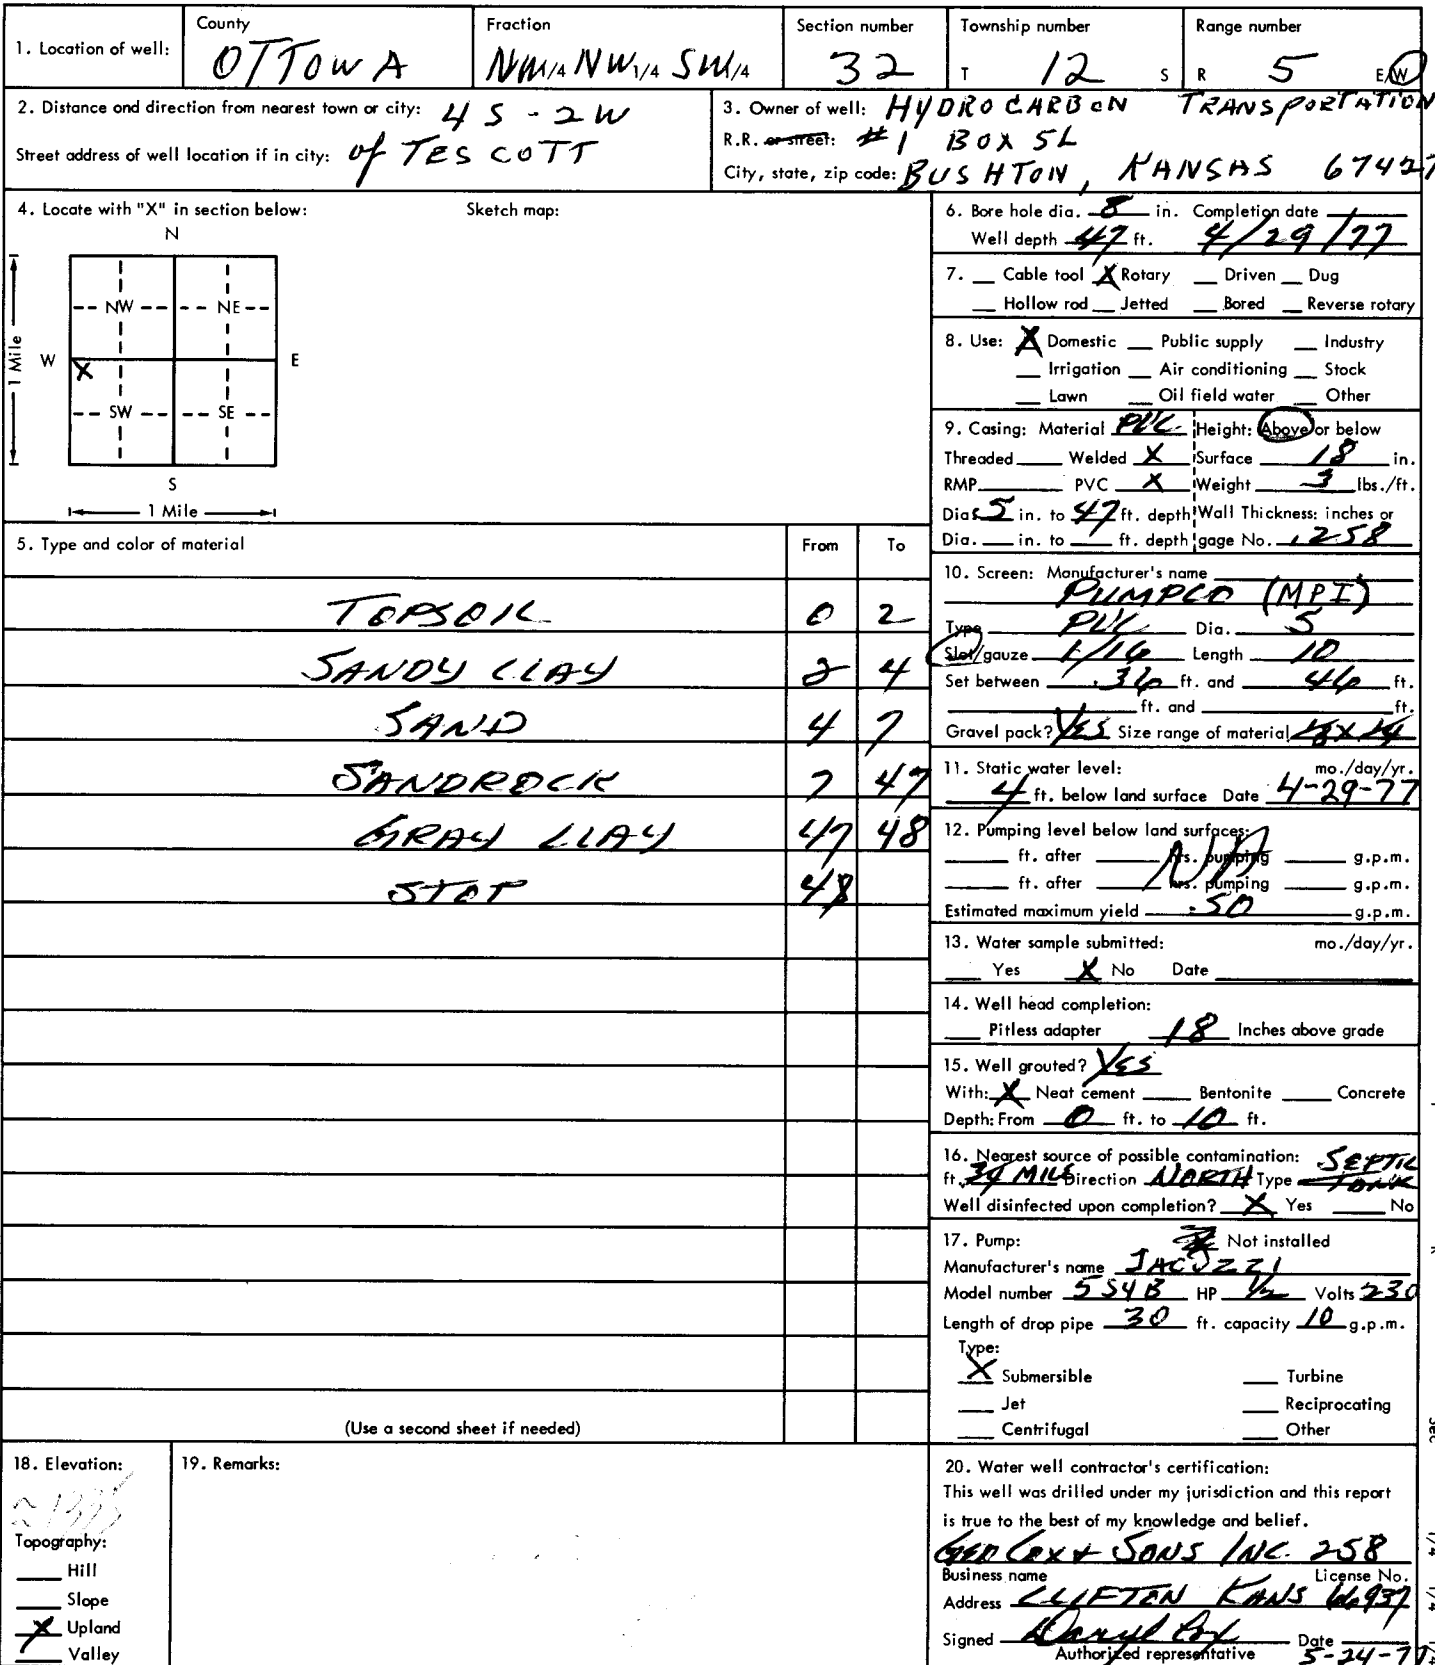 1. Location of well: County OTTOWA Fraction NW 1/4 NW 1/4 SW 1/4 Section number 32 Township number T 12 S Range number R 5 E/W
2. Distance and direction from nearest town or city: 4 S - 2 W
Street address of well location if in city: of TESCOTT
3. Owner of well: HYDROCARBON TRANSPORTATION
R.R. or street: #1 BOX 5L
City, state, zip code: BUSHTON, KANSAS 67427
4. Locate with "X" in section below: Sketch map:
N
NW NE
W E
X
SW SE
S
1 Mile
1 Mile
5. Type and color of material From To
TOPSOIL 0 2
SANDY CLAY 2 4
SAND 4 7
SANDROCK 7 47
GRAY CLAY 47 48
STOP 48
(Use a second sheet if needed)
6. Bore hole dia. 8 in. Completion date
Well depth 47 ft. 4/29/77
7. __ Cable tool X Rotary __ Driven __ Dug
__ Hollow rod __ Jetted __ Bored __ Reverse rotary
8. Use: X Domestic __ Public supply __ Industry
__ Irrigation __ Air conditioning __ Stock
__ Lawn __ Oil field water __ Other
9. Casing: Material PVC Height: Above or below
Threaded __ Welded X Surface 18 in.
RMP __ PVC X Weight 3 lbs./ft.
Dia. 5 in. to 47 ft. depth Wall Thickness: inches or
Dia. __ in. to __ ft. depth gage No. .258
10. Screen: Manufacturer's name
PUMPCO (MPI)
Type PVC Dia. 5
Slot/gauze 1/16 Length 10
Set between 36 ft. and 46 ft.
__ ft. and __ ft.
Gravel pack? YES Size range of material
11. Static water level: mo./day/yr.
4 ft. below land surface Date 4-29-77
12. Pumping level below land surfaces:
__ ft. after __ hrs. pumping __ g.p.m.
NA
__ ft. after __ hrs. pumping __ g.p.m.
Estimated maximum yield 50 g.p.m.
13. Water sample submitted: mo./day/yr.
__ Yes X No Date
14. Well head completion:
__ Pitless adapter 18 Inches above grade
15. Well grouted? YES
With: X Neat cement __ Bentonite __ Concrete
Depth: From 0 ft. to 10 ft.
16. Nearest source of possible contamination: SEPTIC
ft. 3/4 MILE Direction NORTH Type TANK
Well disinfected upon completion? X Yes __ No
17. Pump: Not installed
Manufacturer's name JACUZZI
Model number 5S4B HP 1/2 Volts 230
Length of drop pipe 30 ft. capacity 10 g.p.m.
Type:
X Submersible __ Turbine
__ Jet __ Reciprocating
__ Centrifugal __ Other
18. Elevation:
≈1335
Topography:
__ Hill
__ Slope
X Upland
__ Valley
19. Remarks:
20. Water well contractor's certification:
This well was drilled under my jurisdiction and this report
is true to the best of my knowledge and belief.
GEO COX & SONS INC. 258
Business name License No.
Address CLIFTON KANS 66937
Signed Darryl Cox Date
Authorized representative 5-24-77
Sec
1/4 1/4 1/4